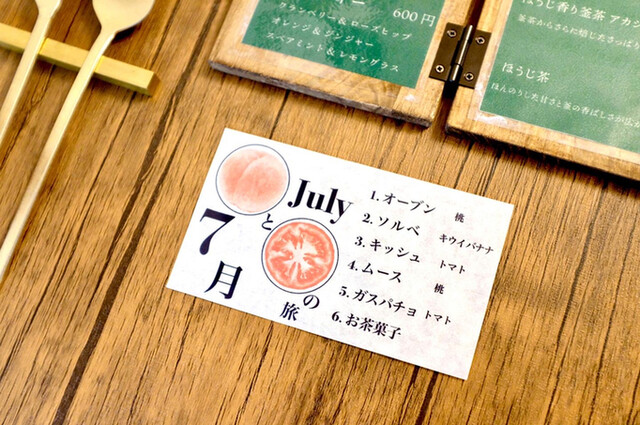 ー
600円
クランベリー＆ローズヒップ
オレンジ＆ジンジャー
スペアミント＆レモングラス
ほうじ香り釜茶 アカ
釜茶からさらに焙じたさっぱ
ほうじ茶
ほんのりした甘さと釜の香ばしさが広が
July
7月
と
の
旅
1.オーブン 桃
2.ソルベ キウイバナナ
3.キッシュ トマト
4.ムース 桃
5.ガスパチョ トマト
6.お茶菓子